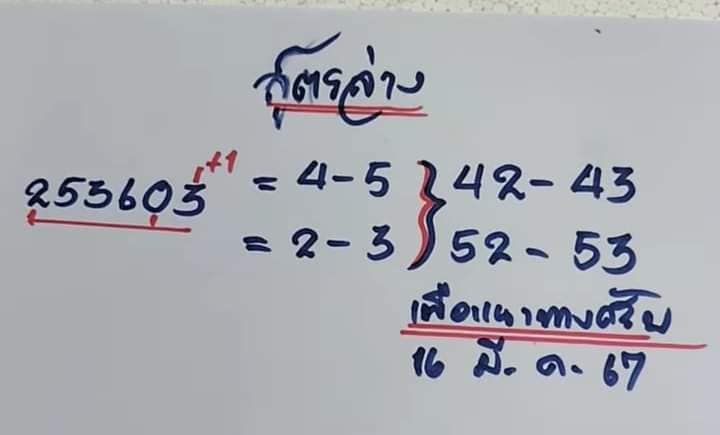 สูตรล่าง
253603 +1 = 4-5 } 42-43
= 2-3 } 52-53
เพื่อแนวทางครับ
16 มี.ค. 67